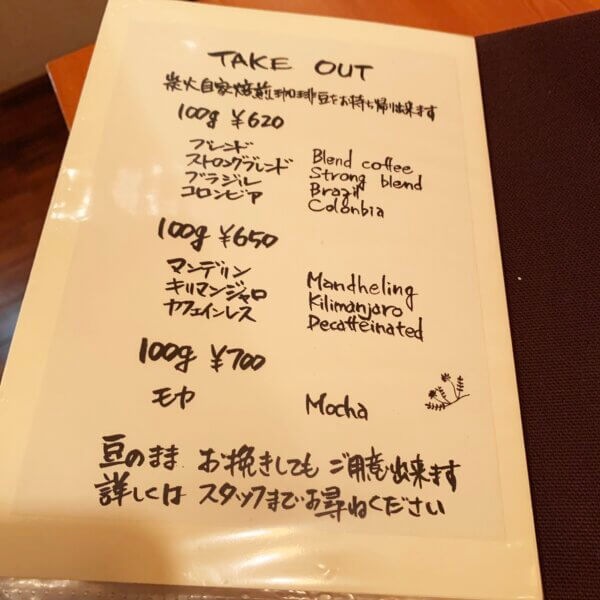 TAKE OUT
炭火自家焙煎珈琲豆をお持ち帰り出来ます
100g ¥620
ブレンド Blend coffee
ストロングブレンド Strong blend
ブラジル Brazil
コロンビア Colonbia
100g ¥650
マンデリン Mandheling
キリマンジャロ Kilimanjaro
カフェインレス Decaffeinated
100g ¥700
モカ Mocha
豆のまま お挽きしても ご用意出来ます
詳しくは スタッフまでお尋ねください